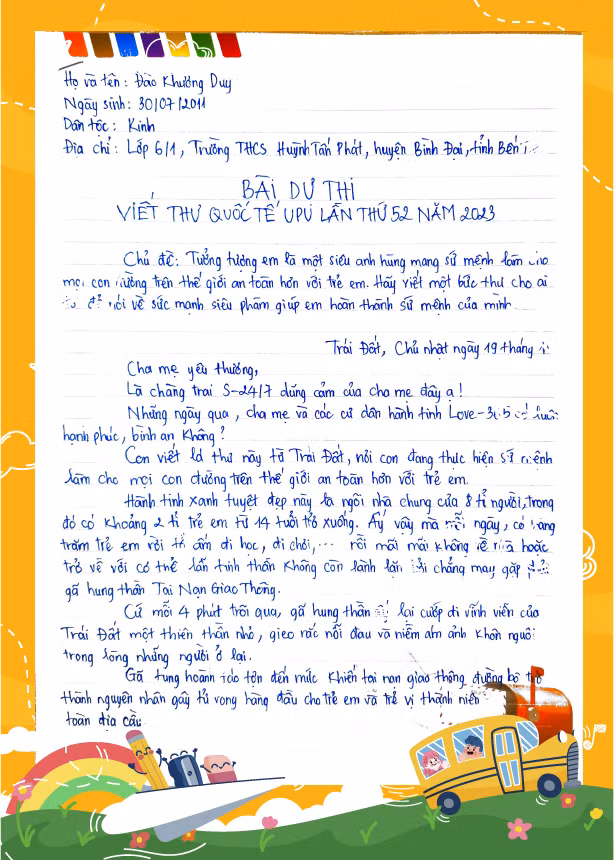 Họ và tên: Đào Khương Duy
Ngày sinh: 30/07/2011
Dân tộc: Kinh
Địa chỉ: Lớp 6/1, Trường THCS Huỳnh Tấn Phát, huyện Bình Đại, tỉnh Bến
BÀI DỰ THI
VIẾT THƯ QUỐC TẾ UPU LẦN THỨ 52 NĂM 2023
Chủ đề: Tưởng tượng em là một siêu anh hùng mang sứ mệnh làm cho
mọi con đường trên thế giới an toàn hơn với trẻ em. Hãy viết một bức thư cho ai
đó để nói về sức mạnh siêu phàm giúp em hoàn thành sứ mệnh của mình
Trái Đất, Chủ nhật ngày 19 tháng
Cha mẹ yêu thương,
Là chàng trai S-24/7 dũng cảm của cha mẹ đây ạ!
Những ngày qua, cha mẹ và các cư dân hành tinh Love-365 có luôn
hạnh phúc, bình an không?
Con viết lá thư này từ Trái Đất, nơi con đang thực hiện sứ mệnh
làm cho mọi con đường trên thế giới an toàn hơn với trẻ em.
Hành tinh xanh tuyệt đẹp này là ngôi nhà chung của 8 tỉ người, trong
đó có khoảng 2 tỉ trẻ em từ 14 tuổi trở xuống. Ấy vậy mà mỗi ngày, có hàng
trăm trẻ em rời tổ ấm đi học, đi chơi,... rồi mãi mãi không về nữa hoặc
trở về với cơ thể lẫn tinh thần không còn lành lặn bởi chẳng may gặp phải
gã hung thần Tai Nạn Giao Thông.
Cứ mỗi 4 phút trôi qua, gã hung thần ấy lại cướp đi vĩnh viễn của
Trái Đất một thiên thần nhỏ, gieo rắc nỗi đau và niềm ám ảnh khôn nguôi
trong lòng những người ở lại.
Gã tung hoành tàn đến mức khiến tai nạn giao thông đường bộ trở
thành nguyên nhân gây tử vong hàng đầu cho trẻ em và trẻ vị thành niên
toàn địa cầu